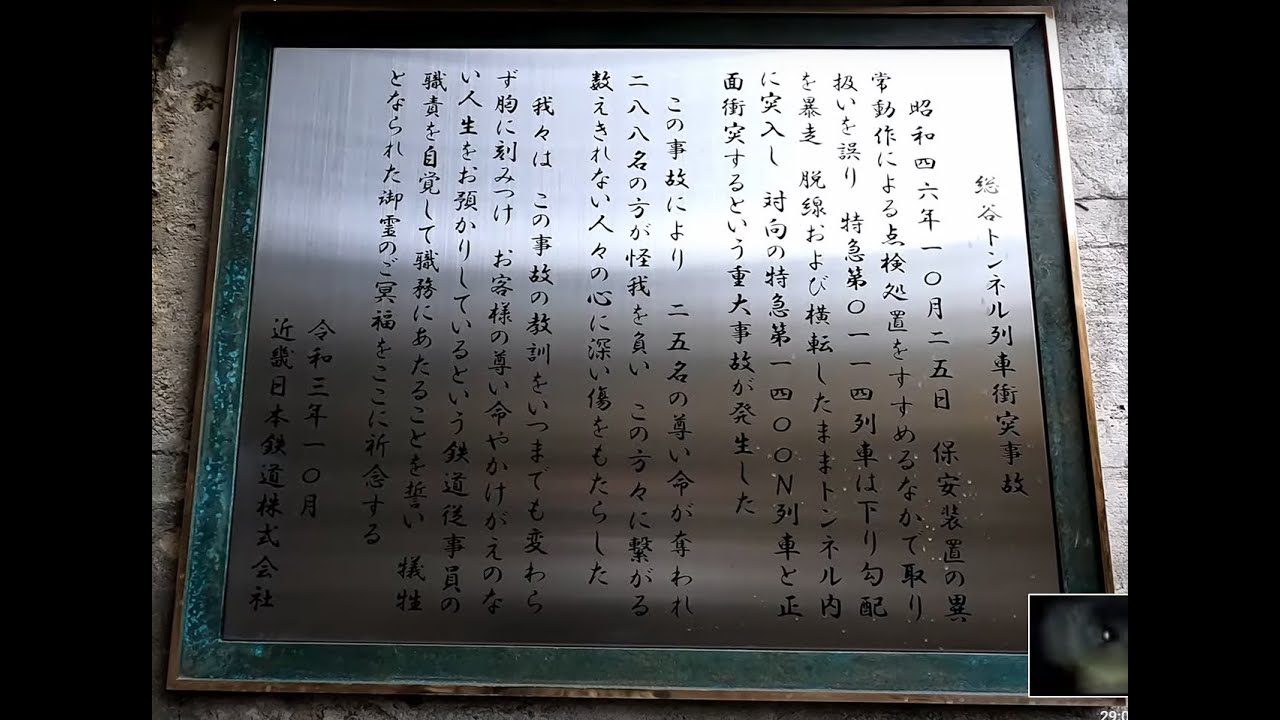 総谷トンネル列車衝突事故
昭和四六年一〇月二五日 保安装置の異
常動作による点検処置をすすめるなかで取り
扱いを誤り 特急第〇一一四列車は下り勾配
を暴走 脱線および横転したままトンネル内
に突入し 対向の特急第一四〇〇N列車と正
面衝突するという重大事故が発生した
この事故により 二五名の尊い命が奪われ
二八八名の方が怪我を負い この方々に繋がる
数えきれない人々の心に深い傷をもたらした
我々は この事故の教訓をいつまでも変わら
ず胸に刻みつけ お客様の尊い命やかけがえのな
い人生をお預かりしているという鉄道従事員の
職責を自覚して職務にあたることを誓い 犠牲
となられた御霊のご冥福をここに祈念する
令和三年一〇月
近畿日本鉄道株式会社